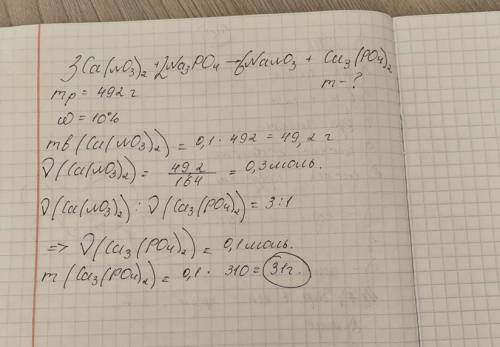 3Ca(NO3)2 + 2Na3PO4 → 6NaNO3 + Ca3(PO4)2
mр = 492 г
m - ?
ω = 10%
mв (Ca(NO3)2) = 0,1 · 492 = 49,2 г
ν(Ca(NO3)2) = 49,2 / 164 = 0,3 моль.
ν(Ca(NO3)2) : ν(Ca3(PO4)2) = 3:1
=> ν(Ca3(PO4)2) = 0,1 моль.
m (Ca3(PO4)2) = 0,1 · 310 = 31г.